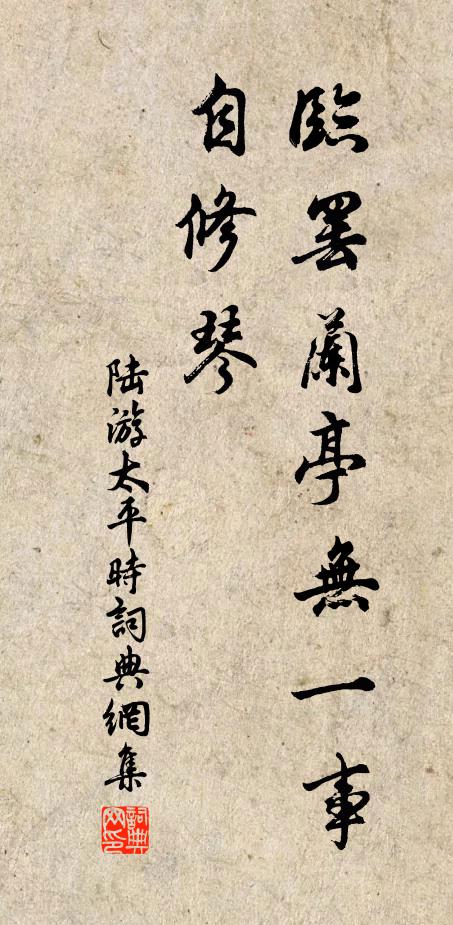 臨罷蘭亭無一事
自修琴
陆游太平時詞典網集
詞典网印